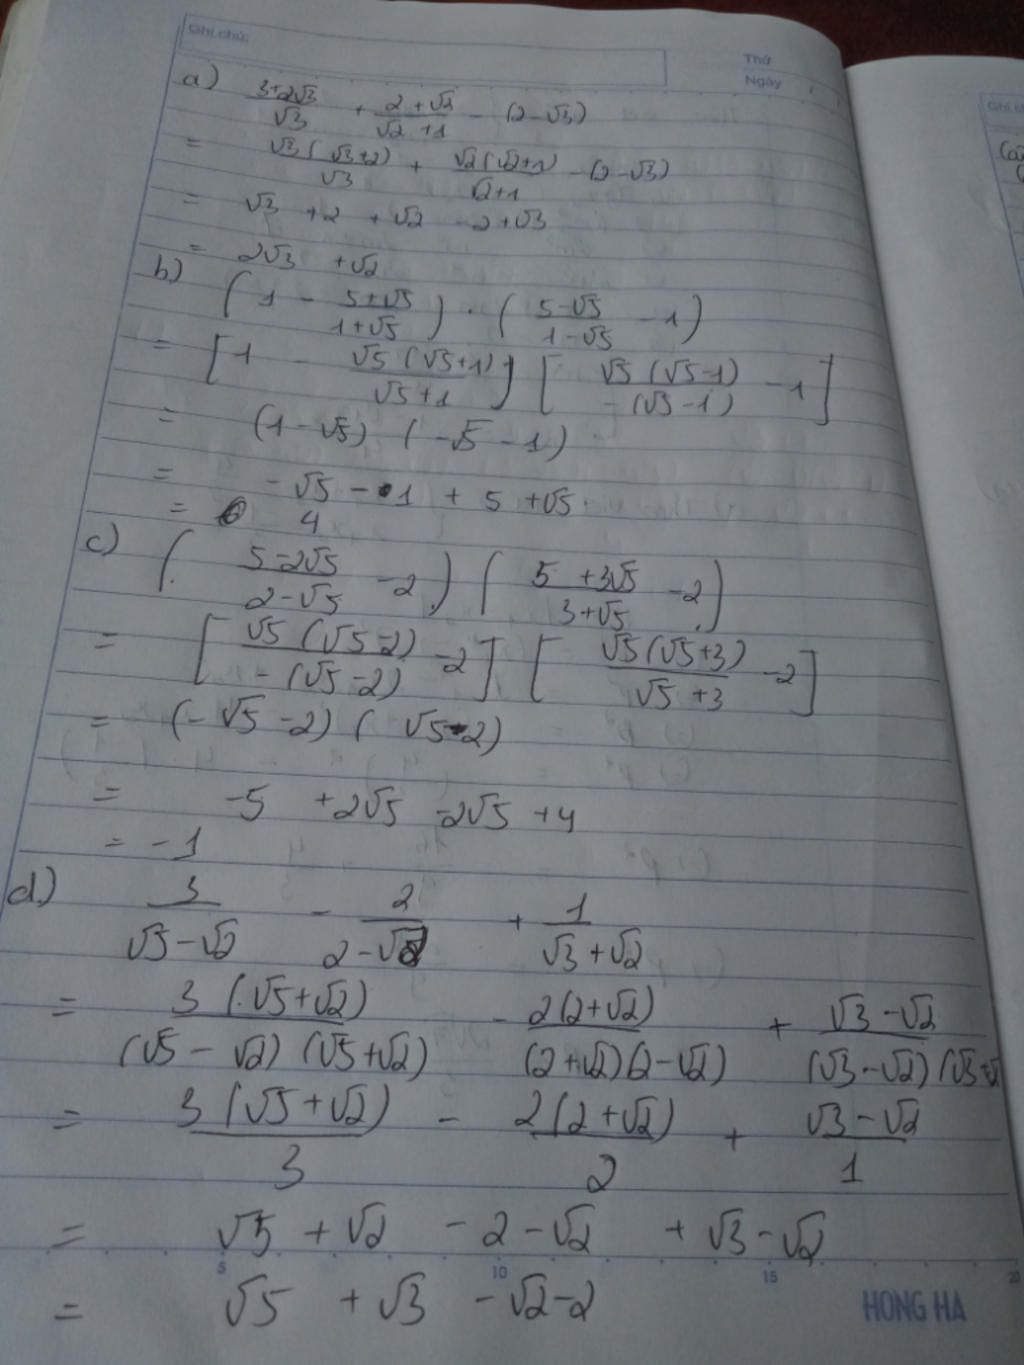 Ghi chú:
Thứ
Ngày / /
a) (3+2√3)/√3 + (2+√2)/(√2+1) - (2-√3)
= √3(√3+2)/√3 + √2(√2+1)/(√2+1) - (2-√3)
= √3 + 2 + √2 - 2 + √3
= 2√3 + √2
b) (1 - (5+√5)/(1+√5)) · ((5-√5)/(1-√5) - 1)
= [1 - √5(√5+1)/(√5+1)] [√5(√5-1)/-(√5-1) - 1]
= (1-√5) (-√5-1)
= -√5 - 1 + 5 + √5
= 4
c) ((5-2√5)/(2-√5) - 2) ((5+3√5)/(3+√5) - 2)
= [√5(√5-2)/-(√5-2) - 2] [√5(√5+3)/(√5+3) - 2]
= (-√5-2) (√5-2)
= -5 + 2√5 - 2√5 + 4
= -1
d) 3/(√5-√2) - 2/(2-√2) + 1/(√3+√2)
= 3(√5+√2)/(√5-√2)(√5+√2) - 2(2+√2)/(2+√2)(2-√2) + (√3-√2)/(√3-√2)(√3+√2)
= 3(√5+√2)/3 - 2(2+√2)/2 + (√3-√2)/1
= √5 + √2 - 2 - √2 + √3 - √2
5 10 15 20
= √5 + √3 - √2 - 2
HONG HA